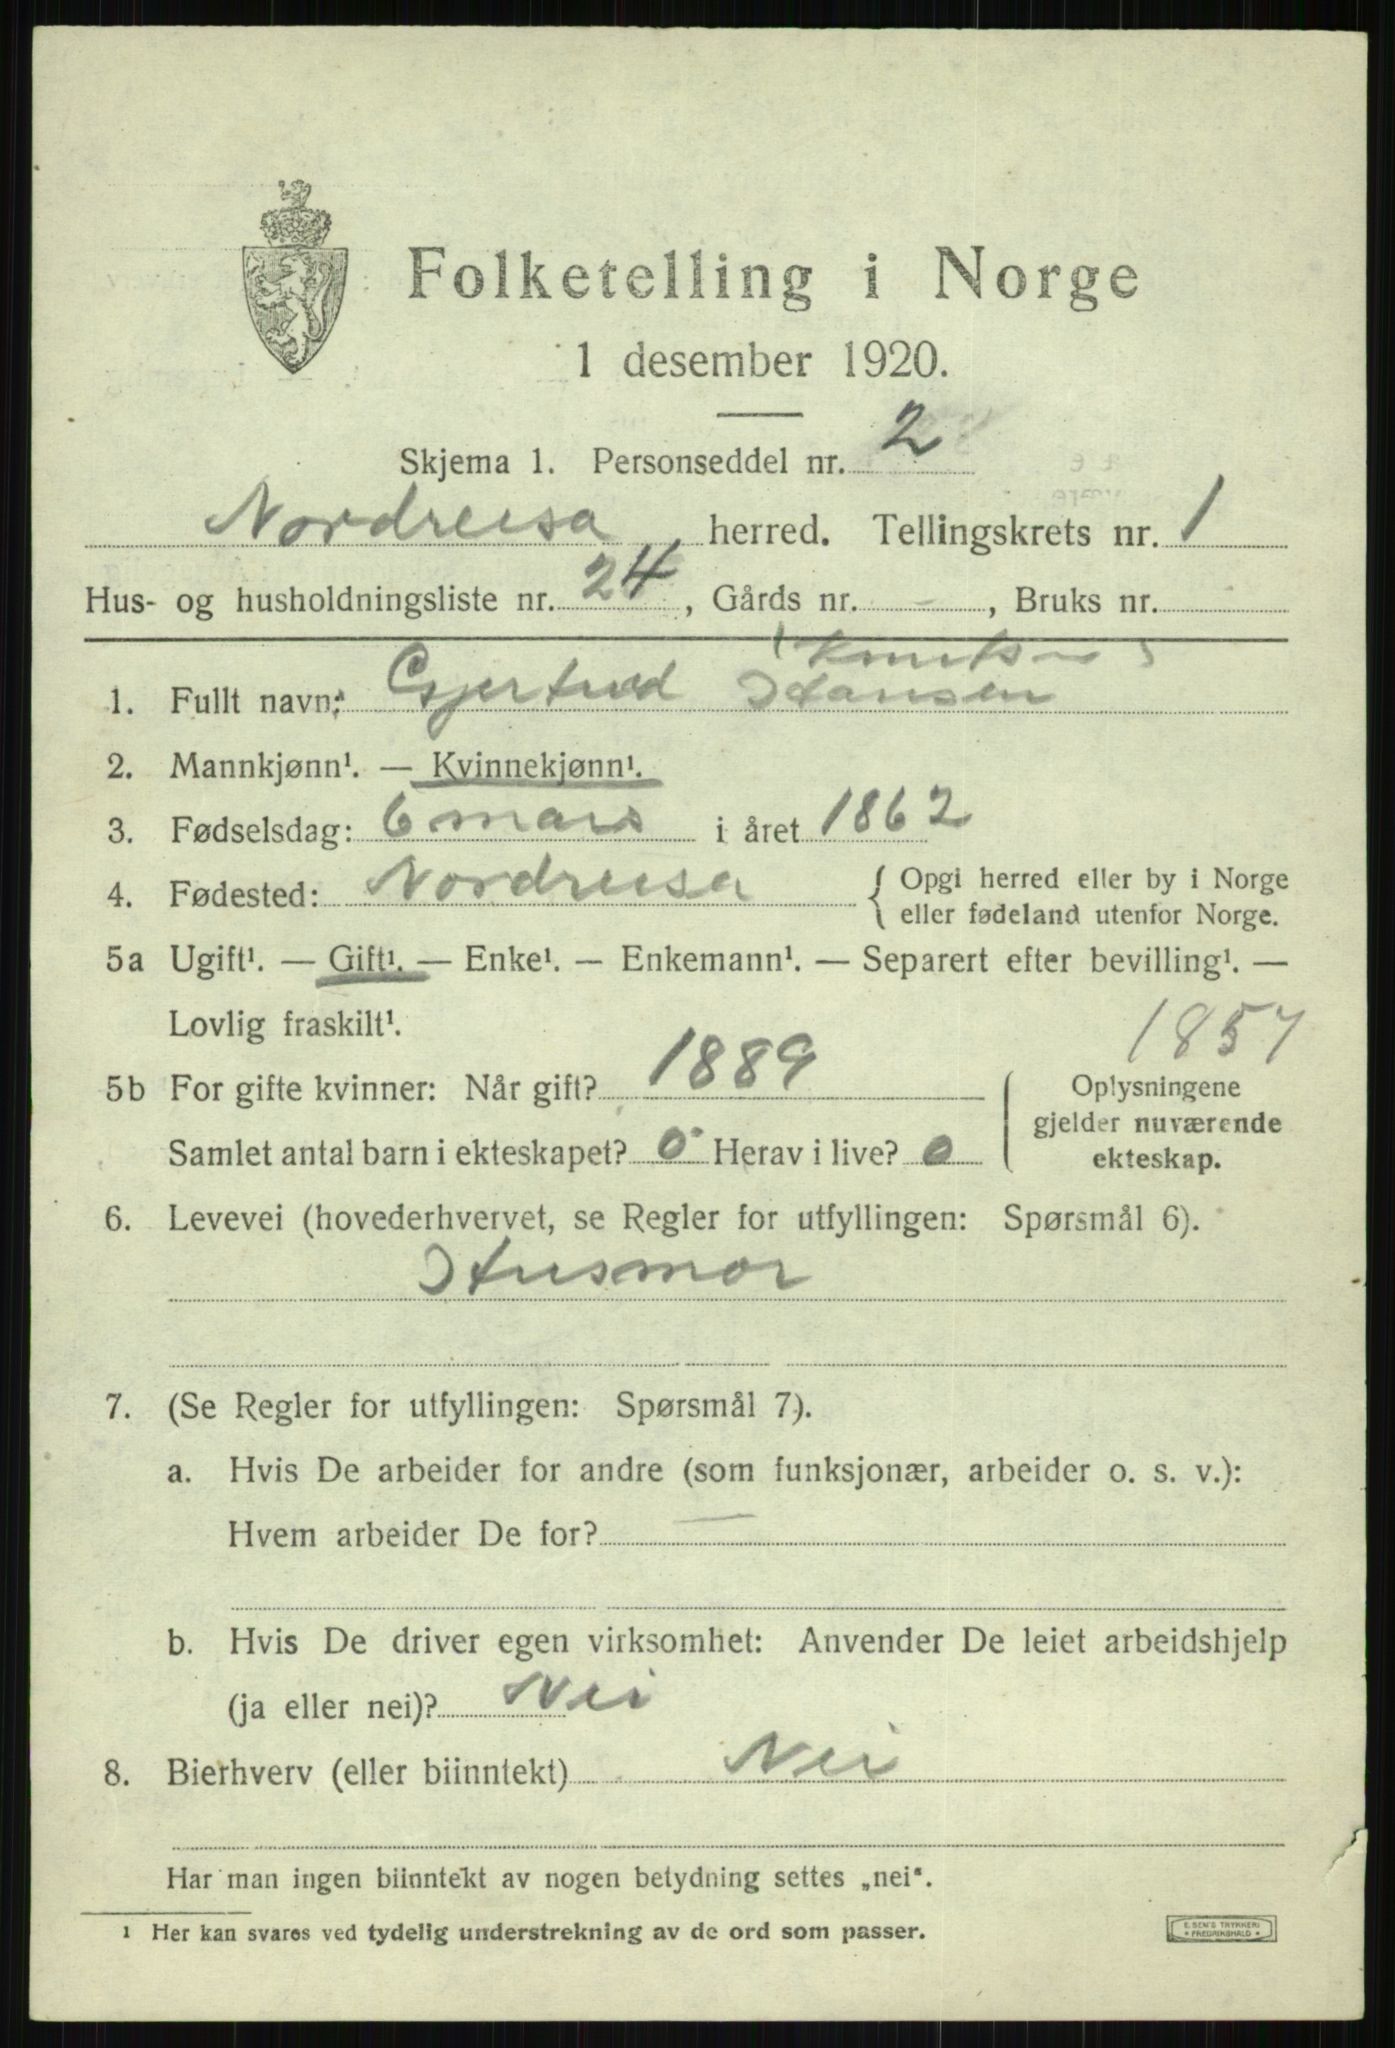 Folketelling i Norge
1 desember 1920.
Skjema 1. Personseddel nr. 2
Nordreisa herred. Tellingskrets nr. 1
Hus- og husholdningsliste nr. 24, Gårds nr. -, Bruks nr.
1. Fullt navn: Gjertrud Hansen
2. Mannkjønn¹. — Kvinnekjønn¹.
3. Fødselsdag: 6 mars i året 1862
4. Fødested: Nordreisa { Opgi herred eller by i Norge
eller fødeland utenfor Norge.
5a Ugift¹. — Gift¹. — Enke¹. — Enkemann¹. — Separert efter bevilling¹. —
Lovlig fraskilt¹.
1857
5b For gifte kvinner: Når gift? 1889
Samlet antal barn i ekteskapet? 0 Herav i live? 0
Oplysningene
gjelder nuværende
ekteskap.
6. Levevei (hovederhvervet, se Regler for utfyllingen: Spørsmål 6).
Husmor
7. (Se Regler for utfyllingen: Spørsmål 7).
a. Hvis De arbeider for andre (som funksjonær, arbeider o. s. v.):
Hvem arbeider De for? —
b. Hvis De driver egen virksomhet: Anvender De leiet arbeidshjelp
(ja eller nei)? Nei
8. Bierhverv (eller biinntekt) Nei
Har man ingen biinntekt av nogen betydning settes „nei“.
¹ Her kan svares ved tydelig understrekning av de ord som passer.
E. SEN'S TRYKKERI
* FREDRIKSHALD *